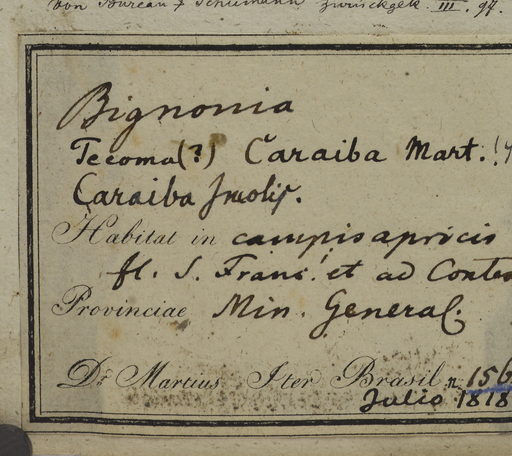 von Bureau & Schumann zurückgek. III. 97.
Bignonia
Tecoma (?) Caraiba Mart. !
Caraiba
Habitat in campis apricis
fl. S. Franc. et ad Conten
Provinciae Min. General.
Dr. Martius Iter Brasil. n. 156
Julio 1818